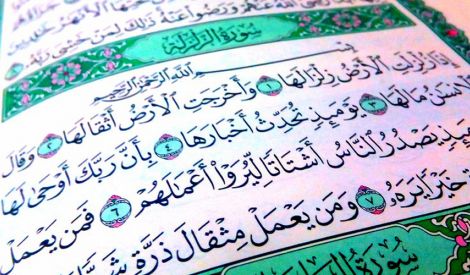 ٱلْأَنْهَٰرُ خَٰلِدِينَ
ٱللَّهُ عَنْهُمْ وَرَضُوا۟ عَنْهُ ذَٰلِكَ لِمَنْ خَشِىَ رَبَّهُۥ
سُورَةُ الزَّلْزَلَةِ
بِسْمِ ٱللَّهِ ٱلرَّحْمَٰنِ ٱلرَّحِيمِ
إِذَا زُلْزِلَتِ ٱلْأَرْضُ زِلْزَالَهَا ١ وَأَخْرَجَتِ ٱلْأَرْضُ أَثْقَالَهَا ٢ وَقَالَ
مَا لَهَا ٣ يَوْمَئِذٍ تُحَدِّثُ أَخْبَارَهَا ٤ بِأَنَّ رَبَّكَ أَوْحَىٰ لَهَا
يَصْدُرُ ٱلنَّاسُ أَشْتَاتًا لِّيُرَوْا۟ أَعْمَٰلَهُمْ ٦ فَمَن يَعْمَلْ
خَيْرًا يَرَهُۥ ٧ وَمَن يَعْمَلْ مِثْقَالَ ذَرَّةٍ
سُورَةُ